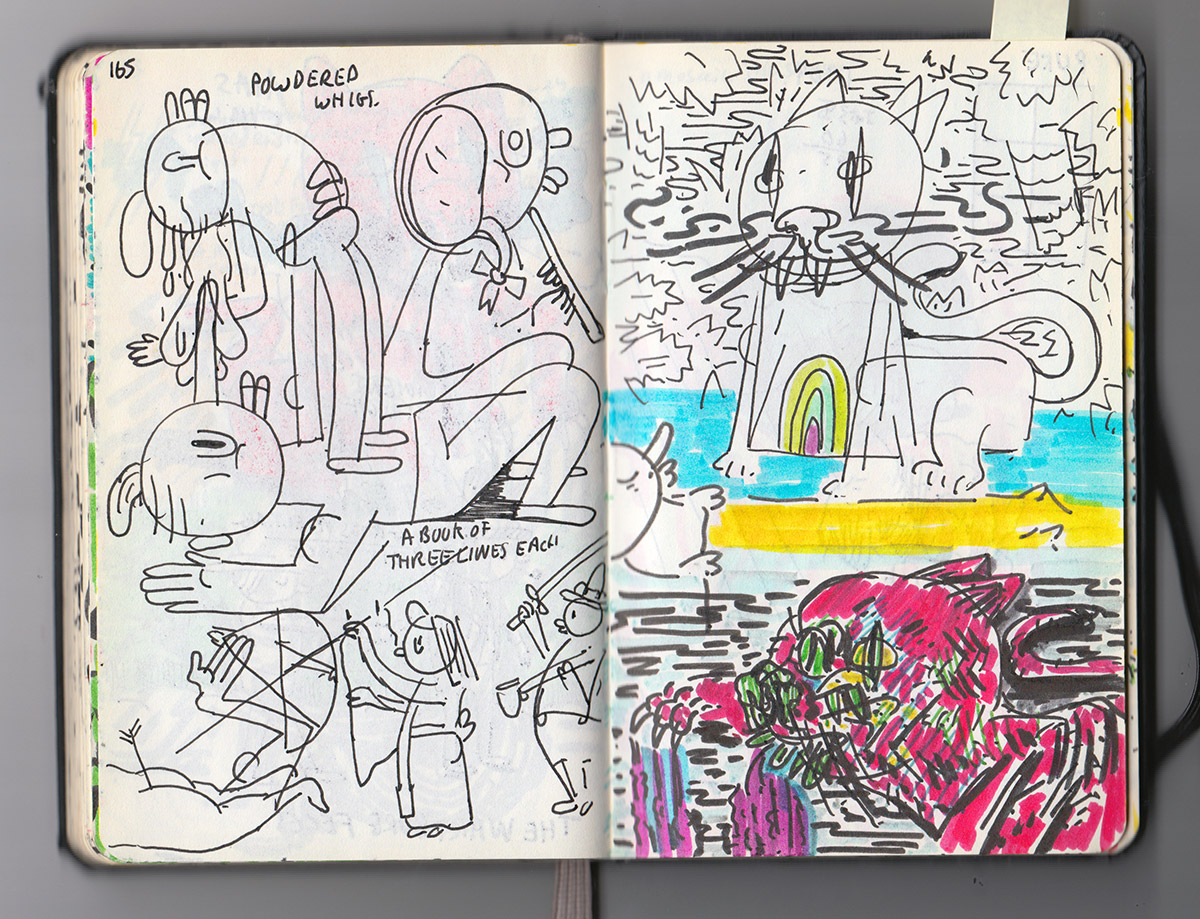 165
POWDERED
WHIGS.
A BOOK OF
THREE LINES EACH